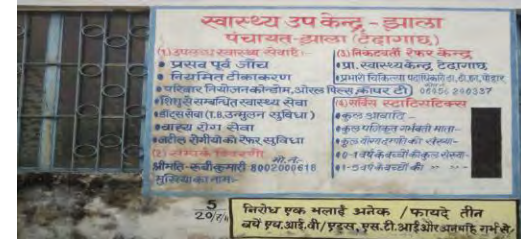 स्वास्थ्य उप केन्द्र - झाला
पंचायत-झाला (टेढ़ागाछ)
(1) उपलब्ध स्वास्थ्य सेवाऐं:-
• प्रसव पूर्व जाँच
• नियमित टीकाकरण
• परिवार नियोजन कोन्डोम, ओरल पिल्स, कॉपर टी)
• शिशु से सम्बन्धित स्वास्थ्य सेवा
• डॉट्स सेवा (T.B. उन्मुलन सुविधा)
• वाह्य रोग सेवा
• जटील रोगीयों को रेफर सुविधा
(2) सम्पर्क विवरणी
मो.न.-
श्रीमति-रूबी कुमारी 8002000616
मुखिया का नाम:-
(3) निकटवर्ती रेफर केन्द्र
• प्रा. स्वास्थ्य केन्द्र टेढ़ागाछ
• प्रभारी चिकित्सा पदाधिकारी
(4) सर्विस स्टाटिस्टिक्स
• कुल आबादि -
• कुल पंजिकृत गर्भवती माता-
• कुल योग्य दम्पती की संख्या-
• 0-1 वर्ष के बच्चों की कुल संख्या-
• 1-5 वर्ष के बच्चों की " " -
5
निरोध एक भलाई अनेक / फायदे तीन
बचें एच.आई.वी/एड्स, एस.टी.आई और अनचाहे गर्भ से